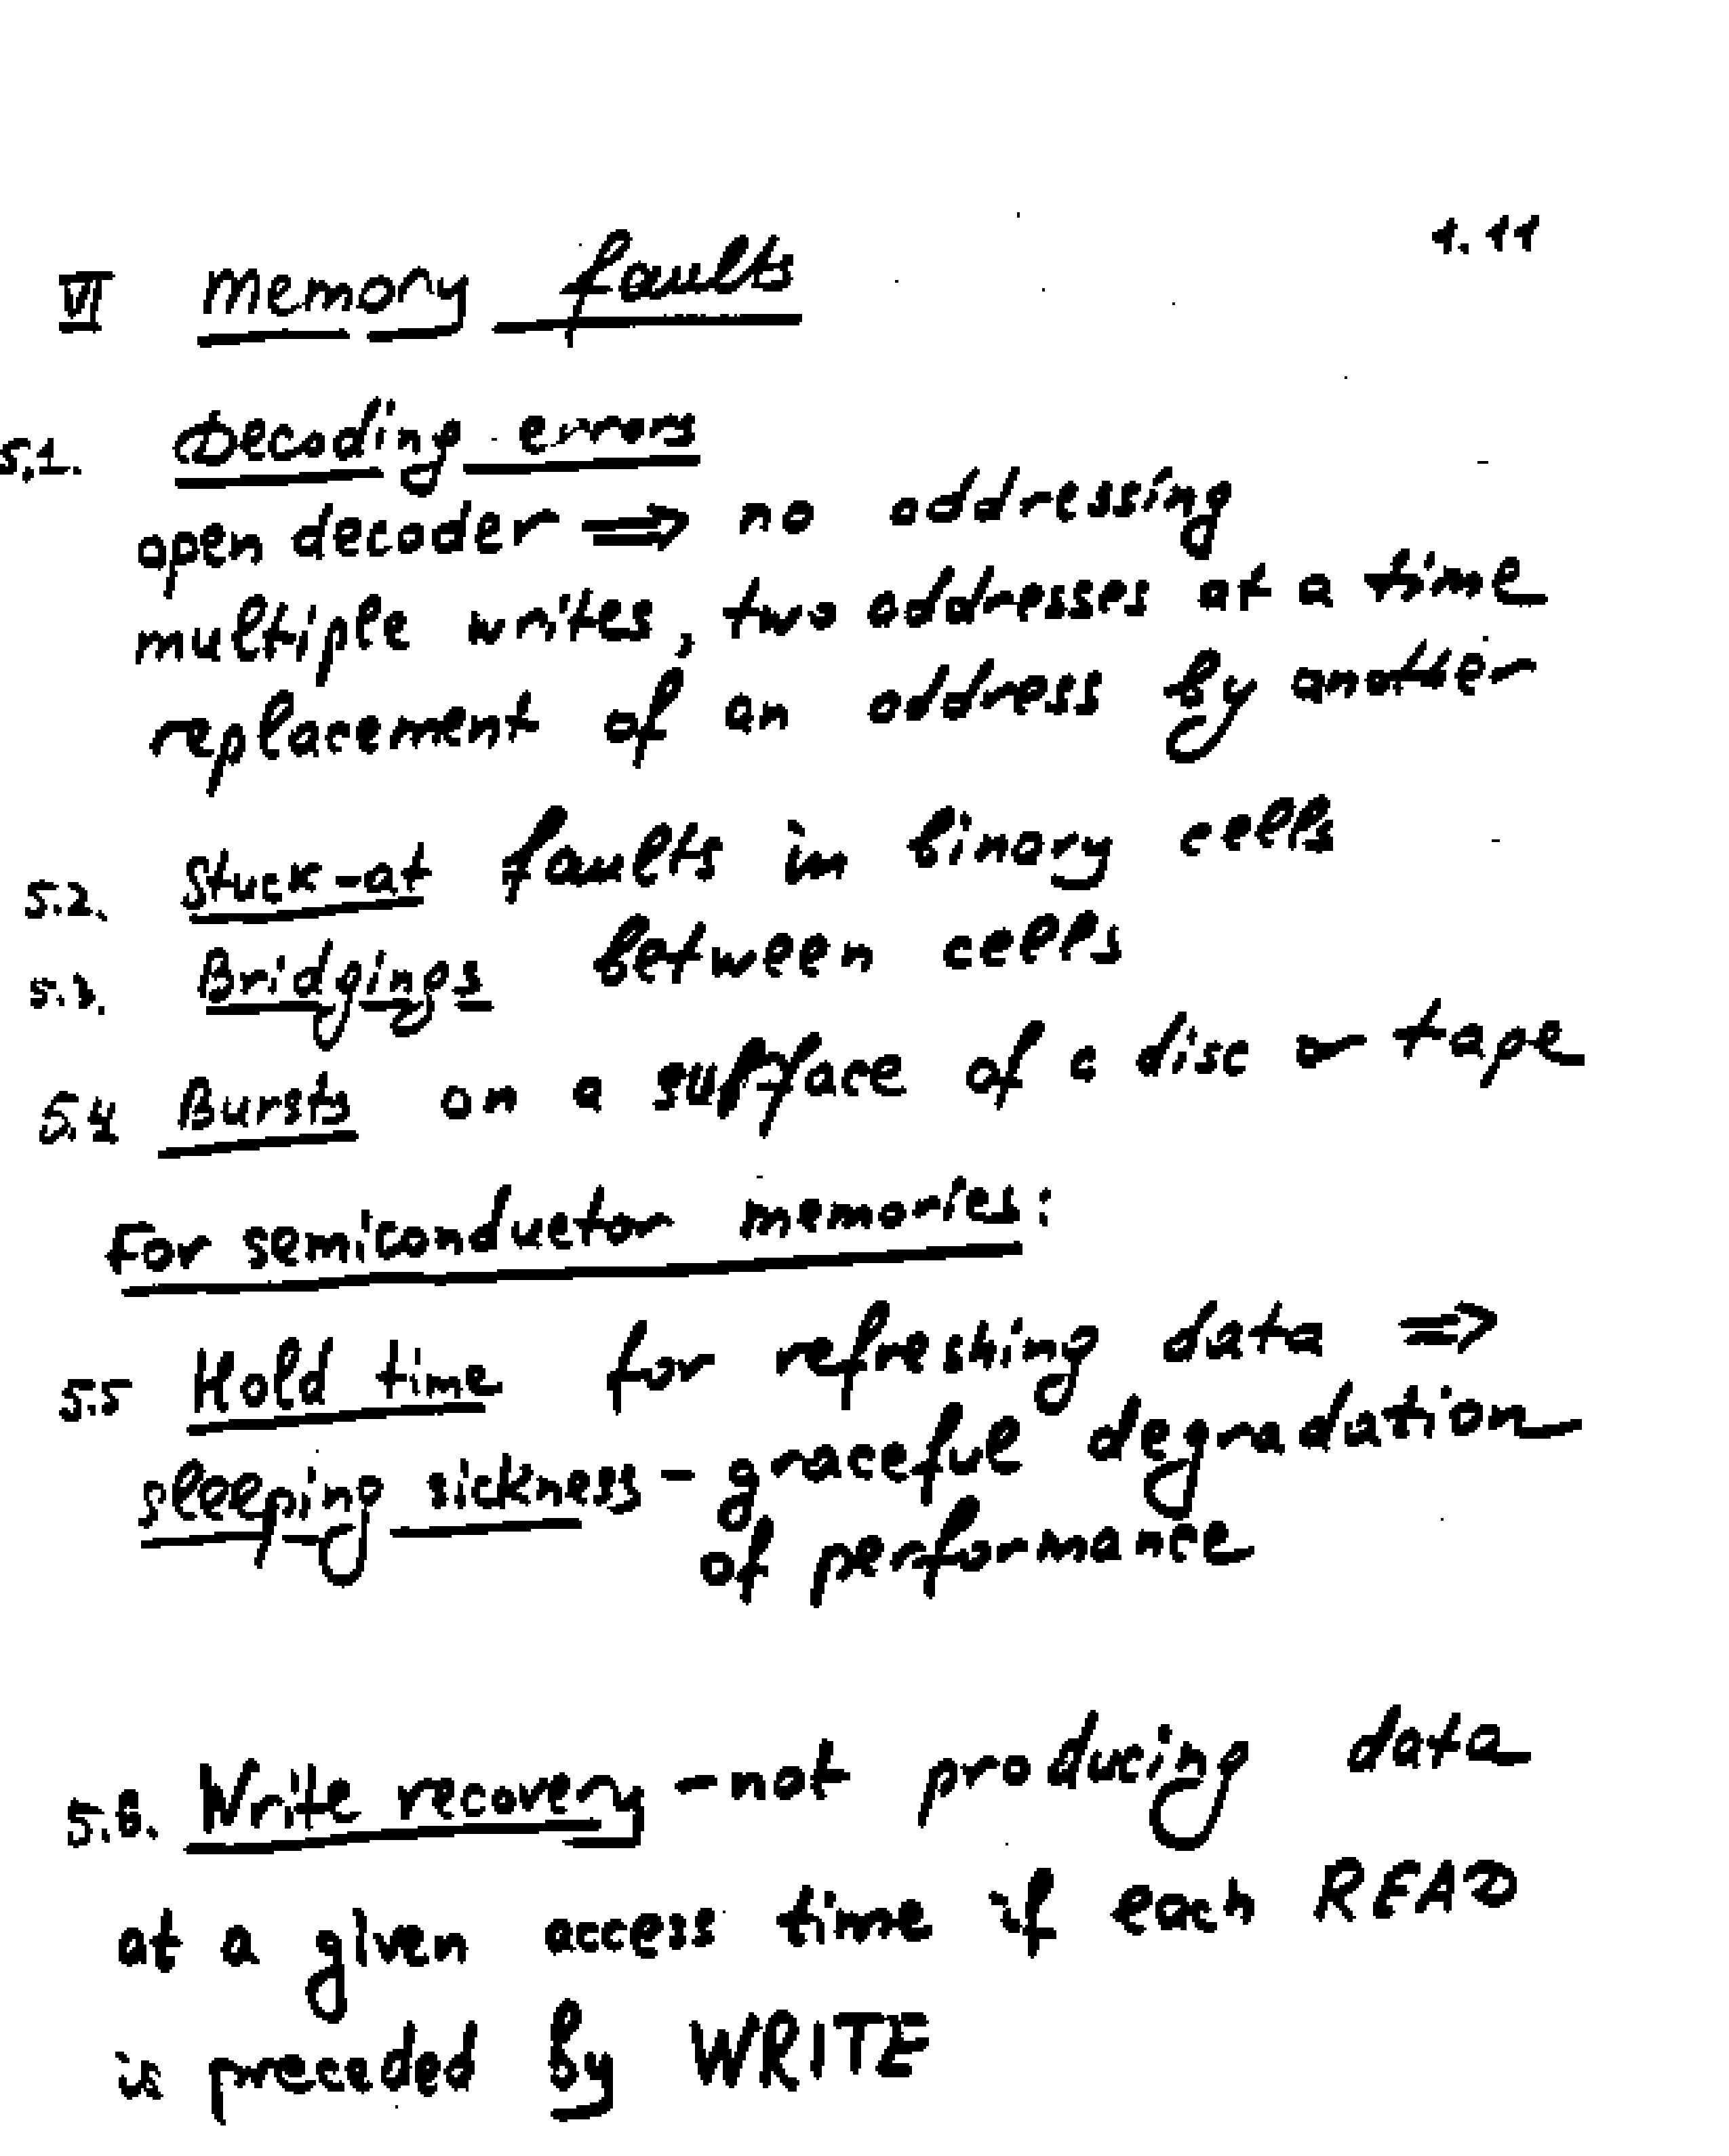 1.11
VI Memory faults
5.1. Decoding errors
open decoder ⇒ no addressing
multiple writes, two addresses at a time
replacement of an address by another
5.2. Stuck-at faults in binary cells
5.3. Bridgings between cells
5.4 Bursts on a surface of a disc or tape
For semiconductor memories:
5.5 Hold time for refreshing data ⇒
sleeping sickness - graceful degradation
of performance
5.6. Write recovery - not producing data
at a given access time if each READ
is preceded by WRITE